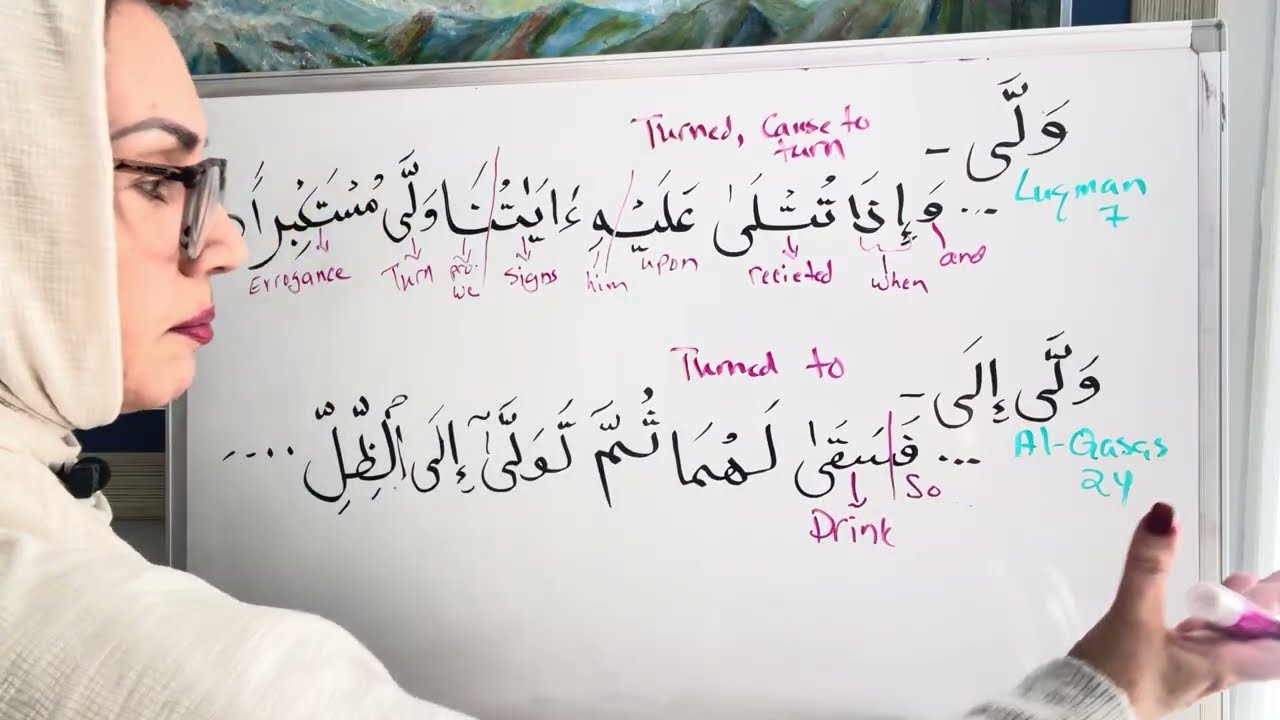 وَلَّى -
Turned, Cause to
turn
Luqman
7
... وَإِذَا تُتْلَىٰ عَلَيْهِ ءَايَٰتُنَا وَلَّىٰ مُسْتَكْبِرًا
and when recieted upon him Signs pro. we Turn Errogance
وَلَّى إِلَى -
Turned to
Al-Qasas
24
... فَسَقَىٰ لَهُمَا ثُمَّ تَوَلَّىٰٓ إِلَى ٱلظِّلِّ ....
So Drink